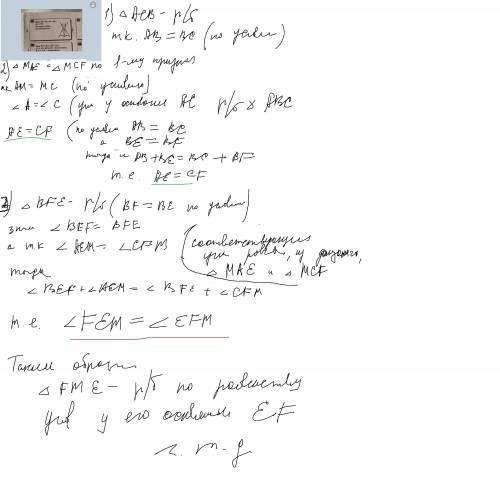 1) △ ACB - р/б
т.к. AB = BC (по услов)
2) △ MAE = △ MCF по 1-му признаку
т.к. AM = MC (по условию)
∠A = ∠C (углы у основания AC р/б △ ABC
AE = CF (по услов AB = BC
а BE = BF
тогда и AB + BE = BC + BF
т.е. AE = CF
3) △ BFE - р/б (BF = BE по услов)
знач ∠ BEF = BFE
а т.к. ∠ AEM = ∠ CFM (соответствующие
углы равных
△ MAE и △ MCF
тогда
∠ BEF + ∠ AEM = ∠ BFE + ∠ CFM
т.е. ∠FEM = ∠EFM
Таким образом
△ FME - р/б по равенству
углов у его основания EF
ч.т.д